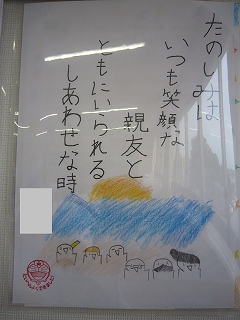 たのしみは
いつも笑顔な
親友と
ともにいられる
しあわせな時